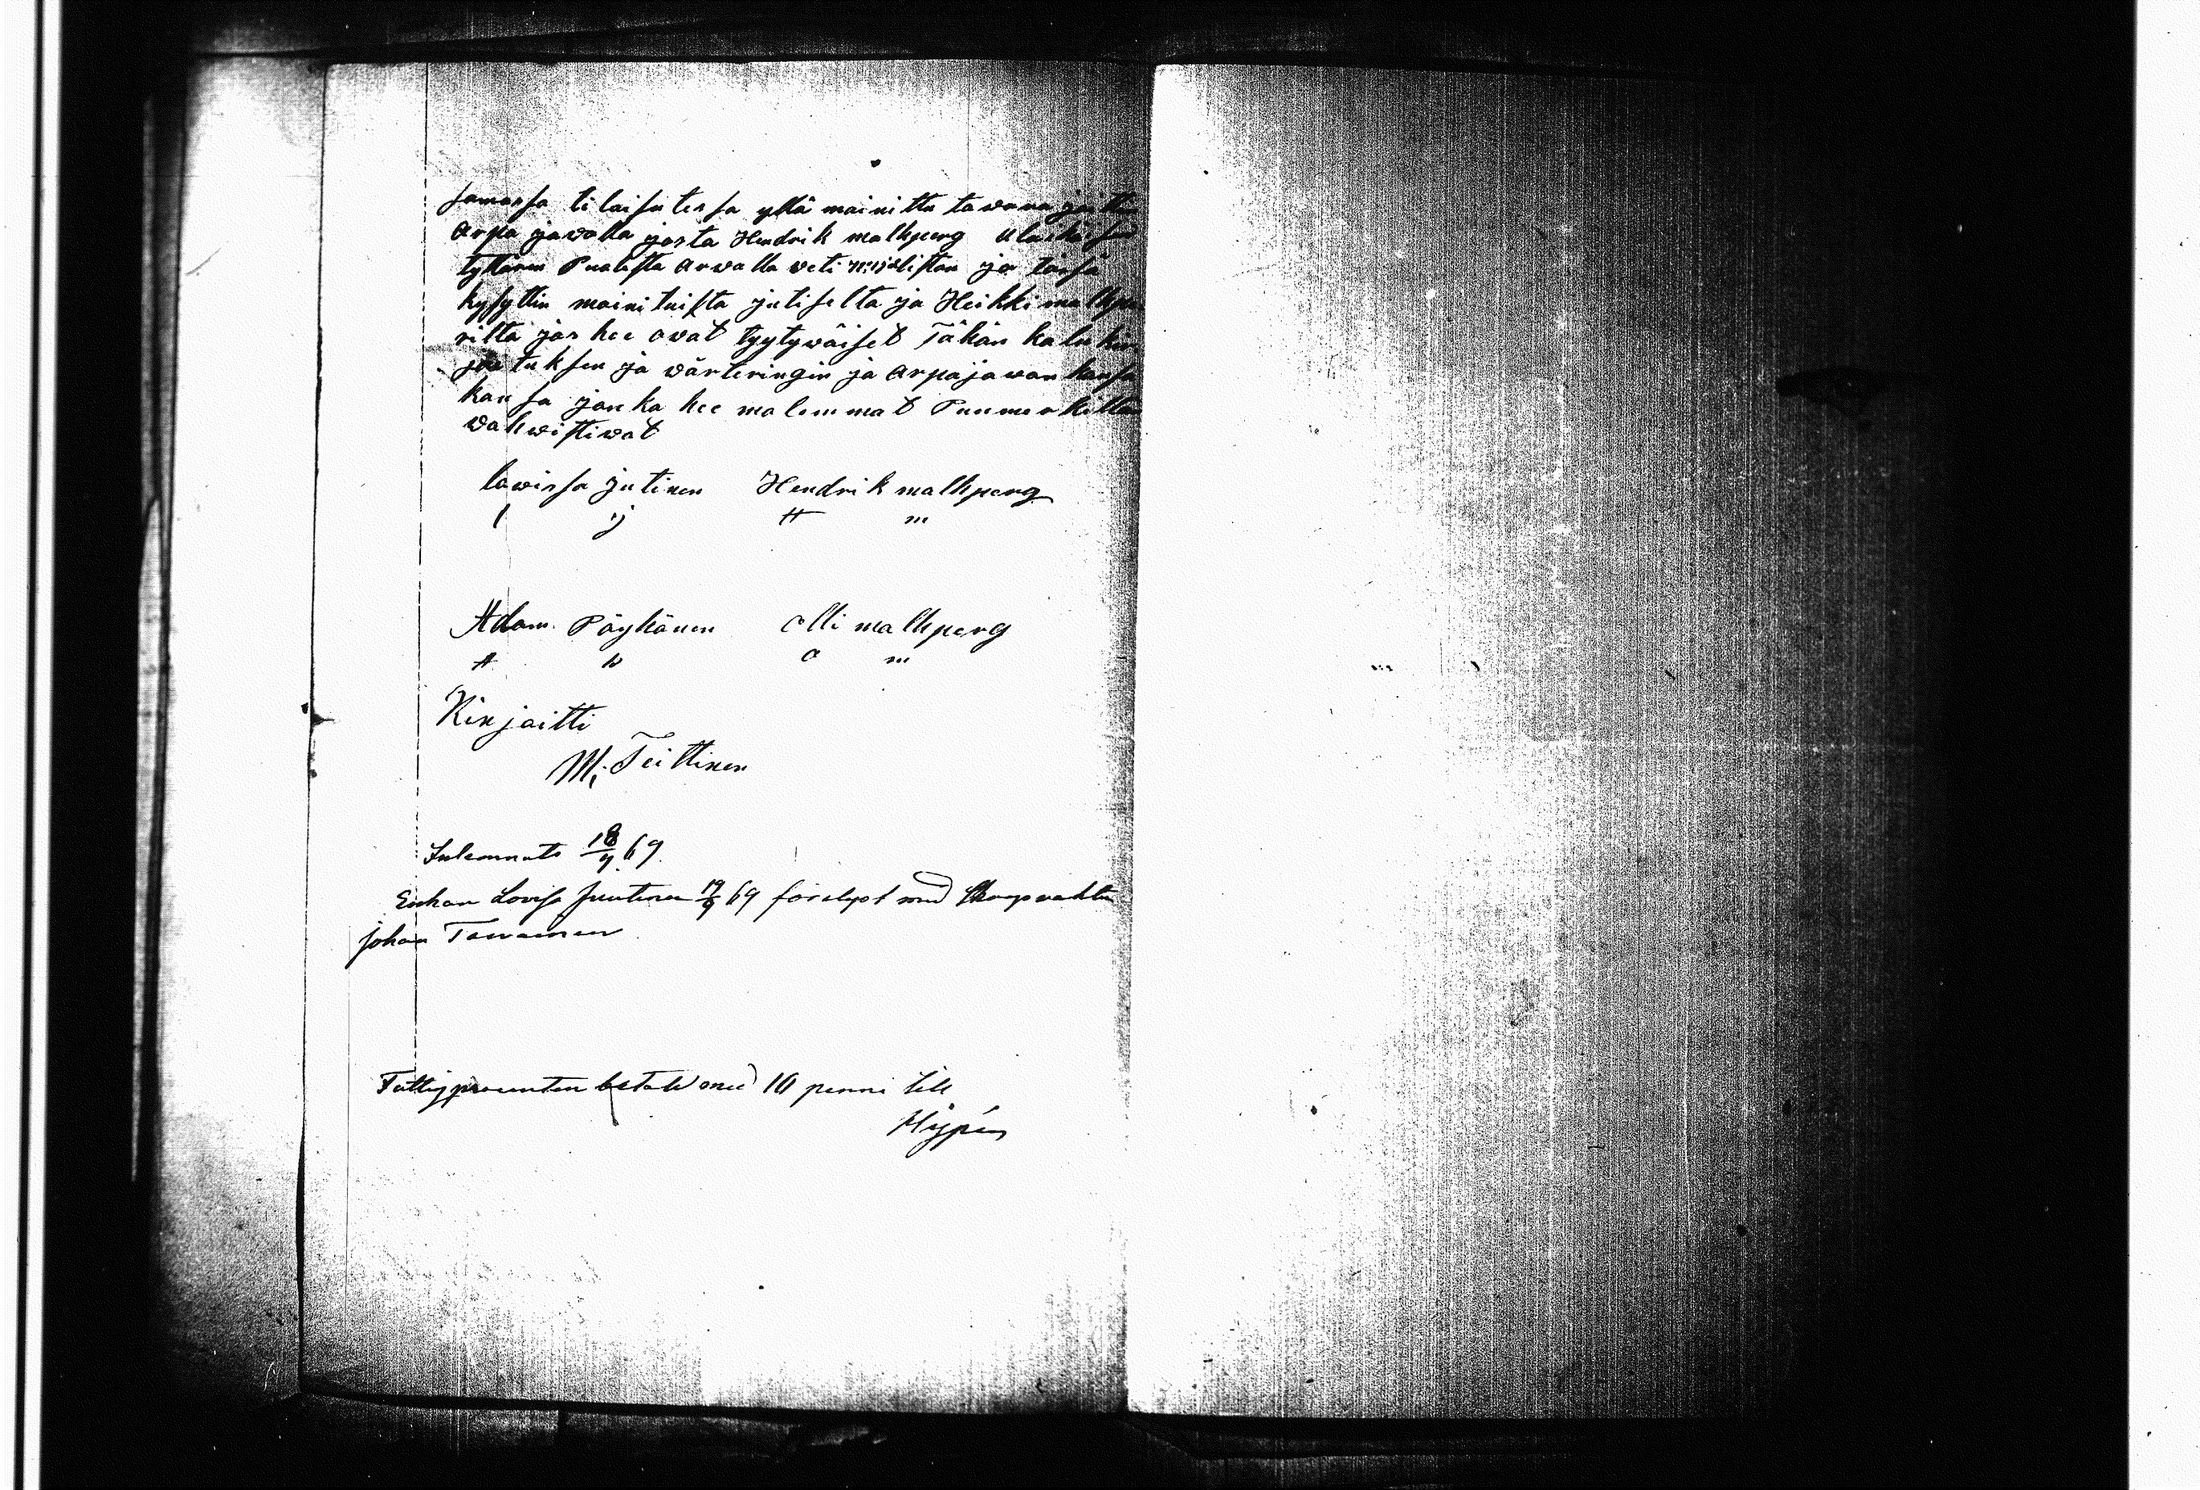 samassa tilaisutessa yllä mainittu tawara jättin
Arpa jawolla josta Hendrik malhperg
tyttären Puolesta Arwalla weti N:o ja tässä
kysyttin mainituista jutiselta ja Heikki malhpe
riltä jos hee ovat tyytywäiset Tähän kalu kir
joituksen ja wärteringin ja Arpajawan kansa
kansa jonka hee molemmat Puumerkillä
wahwistiwat
lowissa jutinen Hendrik malhperg
l j H m
Adam Päykönen olli malhperg
A P O m
Kirjoitti
M: Teittinen
Inlemnats 18/9 69.
Enkan Lovisa Juutinen 19/9 69 förelypt med
Johan Tawainen
Fattigprocenten betald med 10 penni till
Hypén